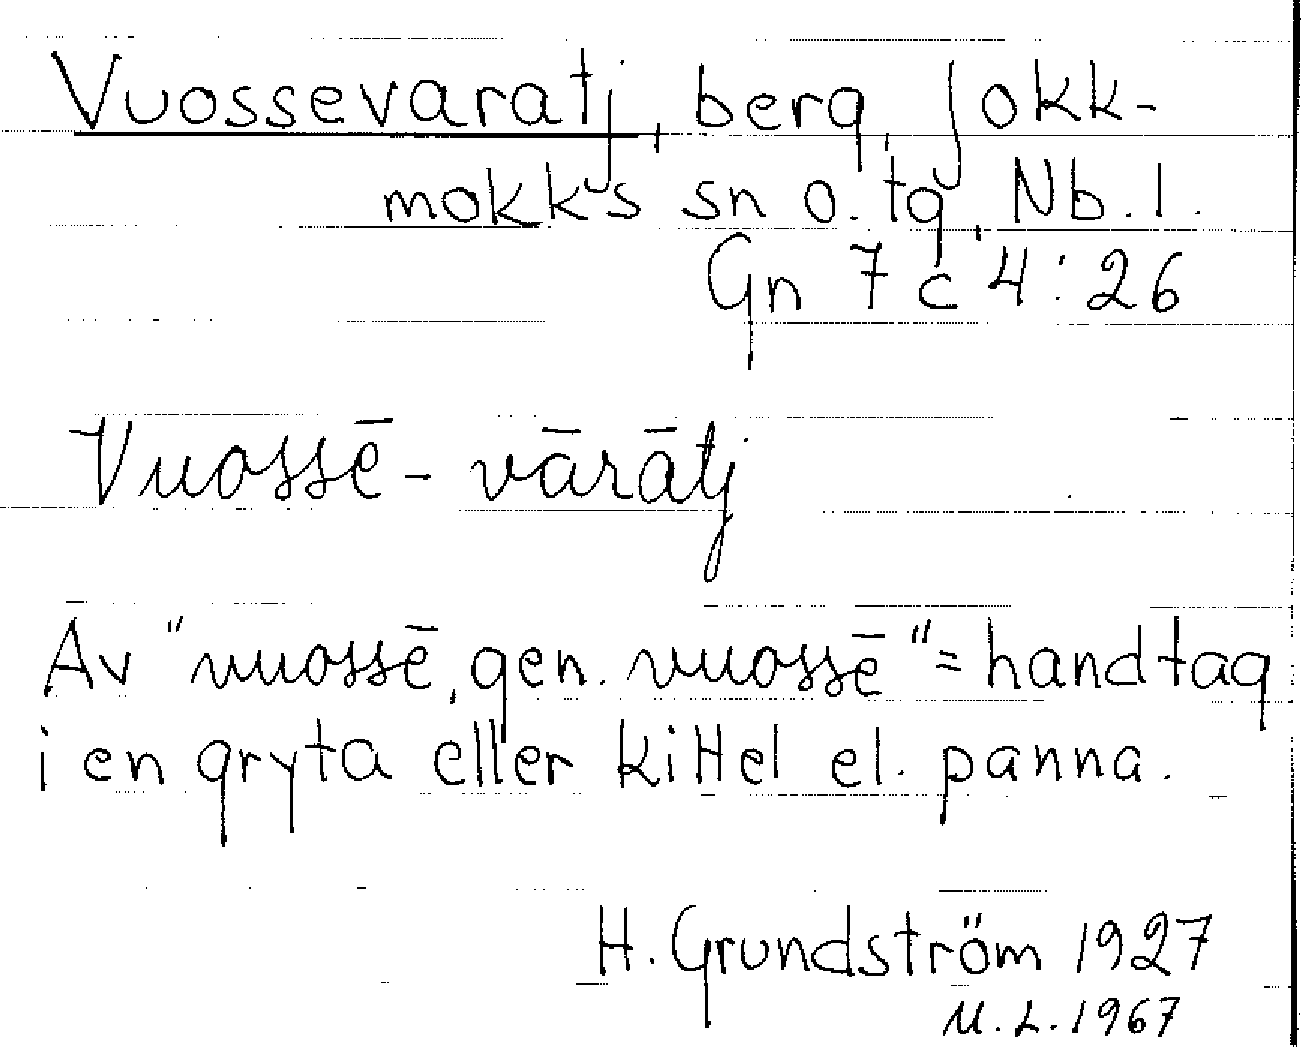 Vuossevaratj, berg, Jokk-
mokks sn o. tg, Nb. l.
Gn 7 c 4:26
Vuossē-vārātj
Av "vuossē, gen. vuossē" = handtag
i en gryta eller kittel el. panna.
H. Grundström 1927
M.L. 1967